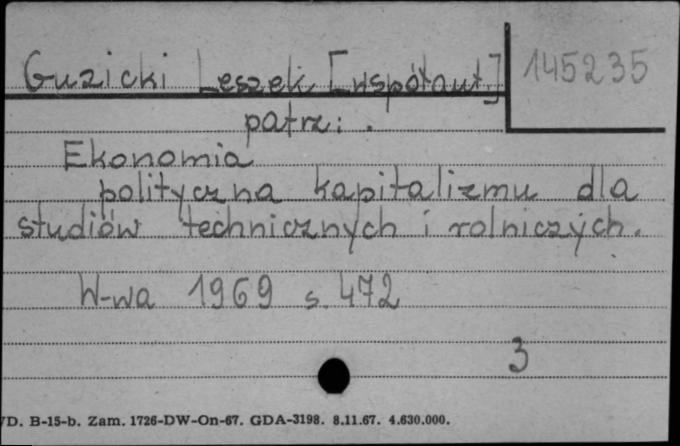 Guzicki Leszek [współaut.] 145235
patrz: .
Ekonomia
polityczna kapitalizmu dla
studiów technicznych i rolniczych.
W-wa 1969 s. 472
3
D. B-15-b. Zam. 1726-DW-On-67. GDA-3198. 8.11.67. 4.630.000.